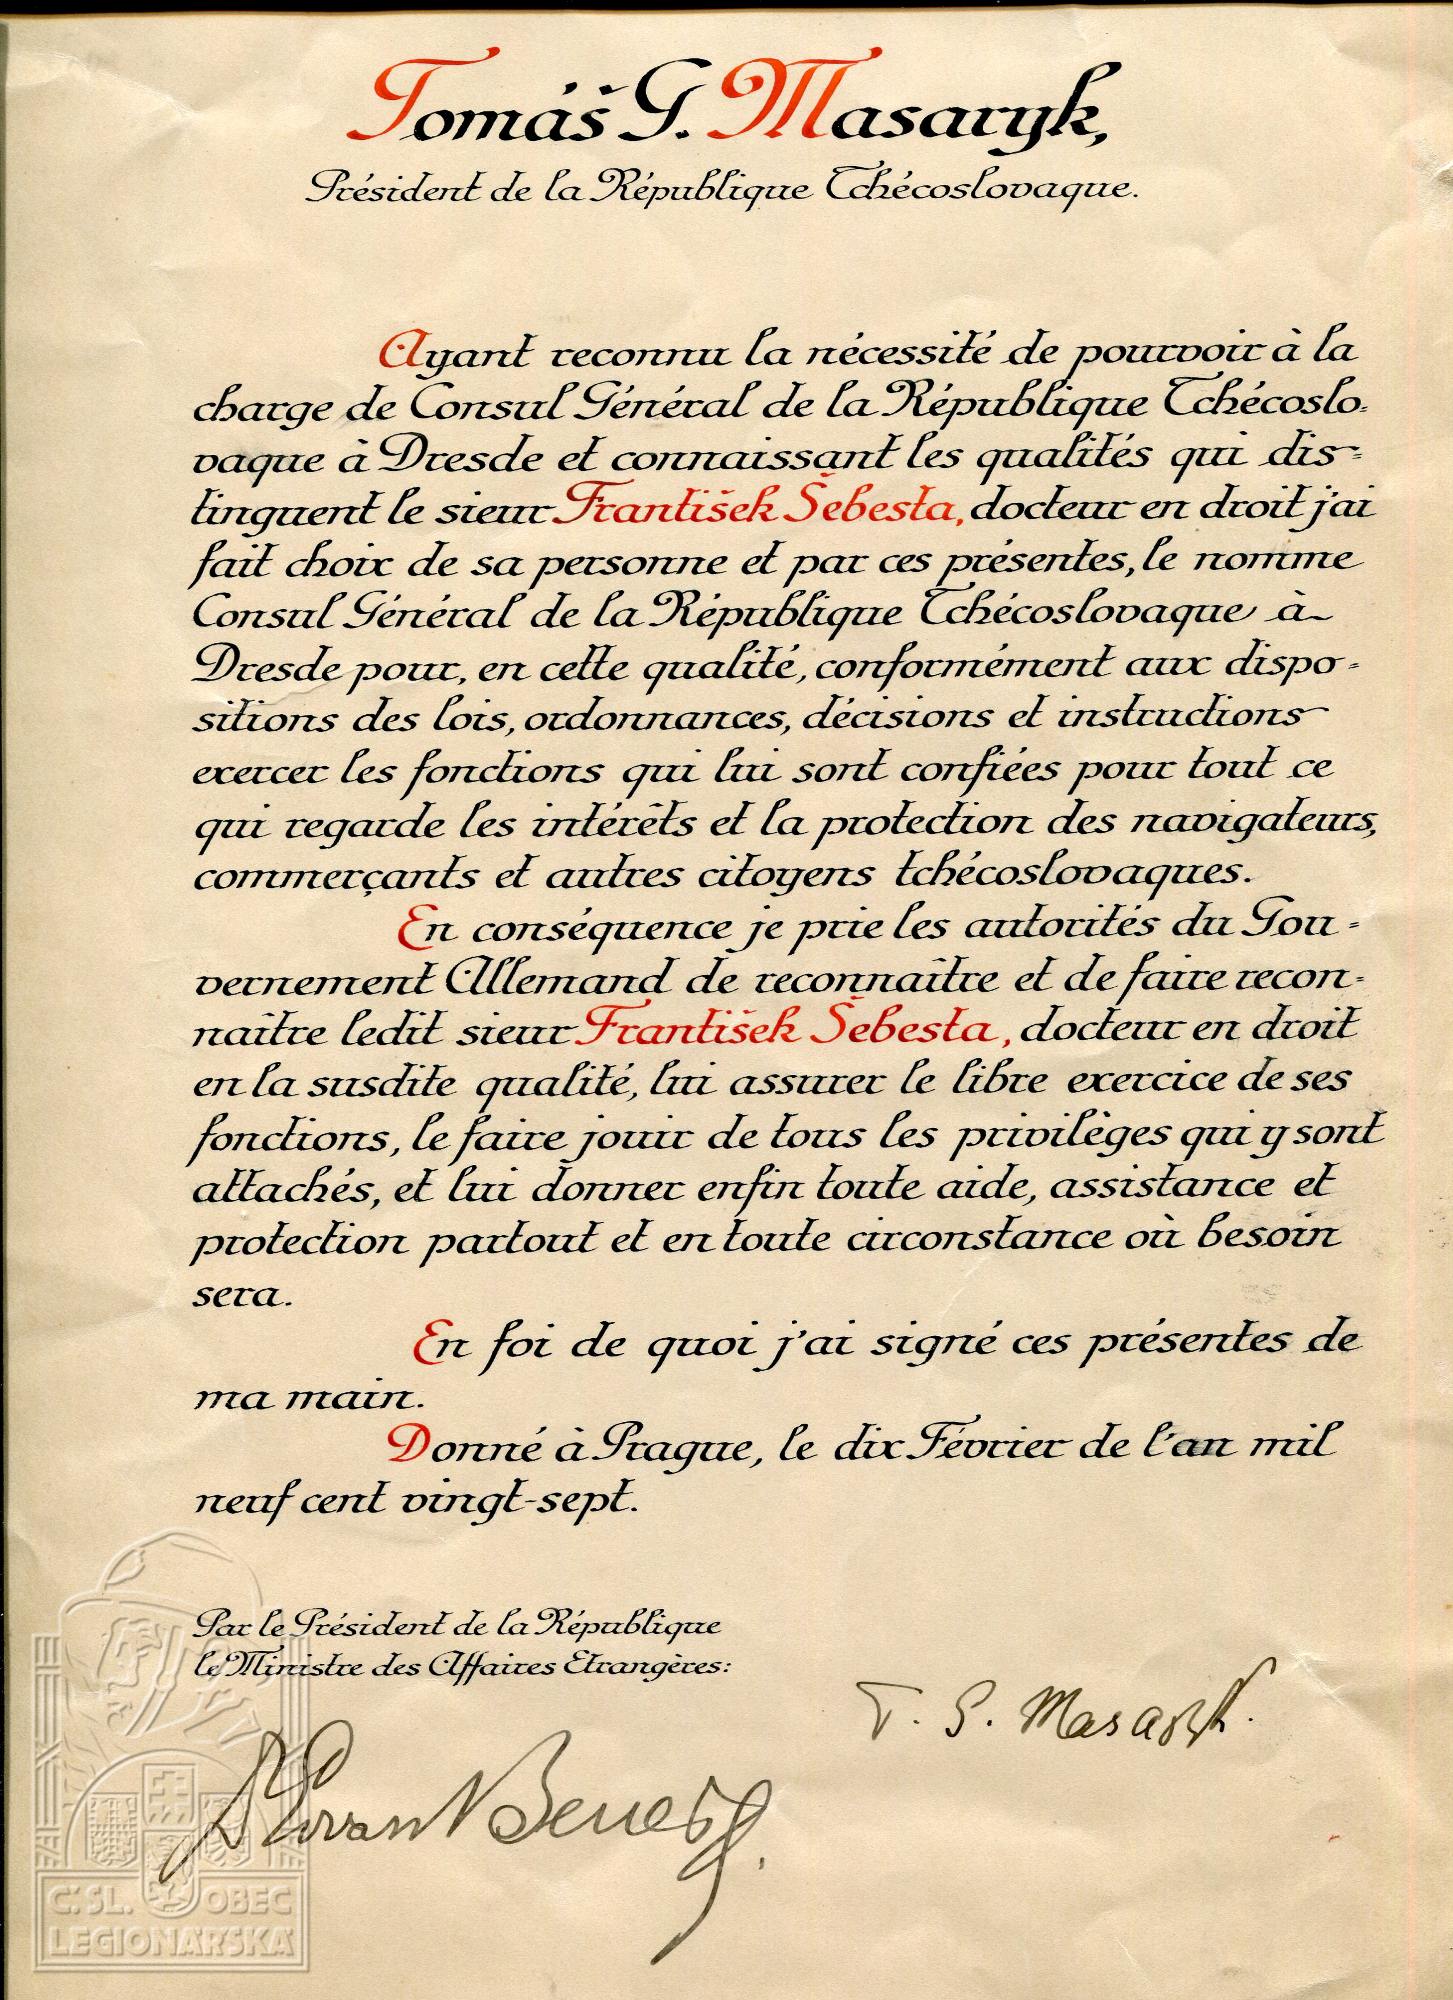 Tomáš G. Masaryk,
Président de la République Tchécoslovaque.
Ayant reconnu la nécessité de pourvoir à la
charge de Consul Général de la République Tchécoslo=
vaque à Dresde et connaissant les qualités qui dis=
tinguent le sieur František Šebesta, docteur en droit j'ai
fait choix de sa personne et par ces présentes, le nomme
Consul Général de la République Tchécoslovaque à
Dresde pour, en cette qualité, conformément aux dispo=
sitions des lois, ordonnances, décisions et instructions
exercer les fonctions qui lui sont confiées pour tout ce
qui regarde les intérêts et la protection des navigateurs,
commerçants et autres citoyens tchécoslovaques.
En conséquence je prie les autorités du Gou=
vernement Allemand de reconnaître et de faire recon=
naître ledit sieur František Šebesta, docteur en droit
en la susdite qualité, lui assurer le libre exercice de ses
fonctions, le faire jouir de tous les privilèges qui y sont
attachés, et lui donner enfin toute aide, assistance et
protection partout et en toute circonstance où besoin
sera.
En foi de quoi j'ai signé ces présentes de
ma main.
Donné à Prague, le dix Février de l'an mil
neuf cent vingt-sept.
Par le Président de la République
le Ministre des Affaires Etrangères:
T. G. Masaryk.
Dr Edvard Beneš.
Č.SL. OBEC
LEGIONÁŘSKÁ